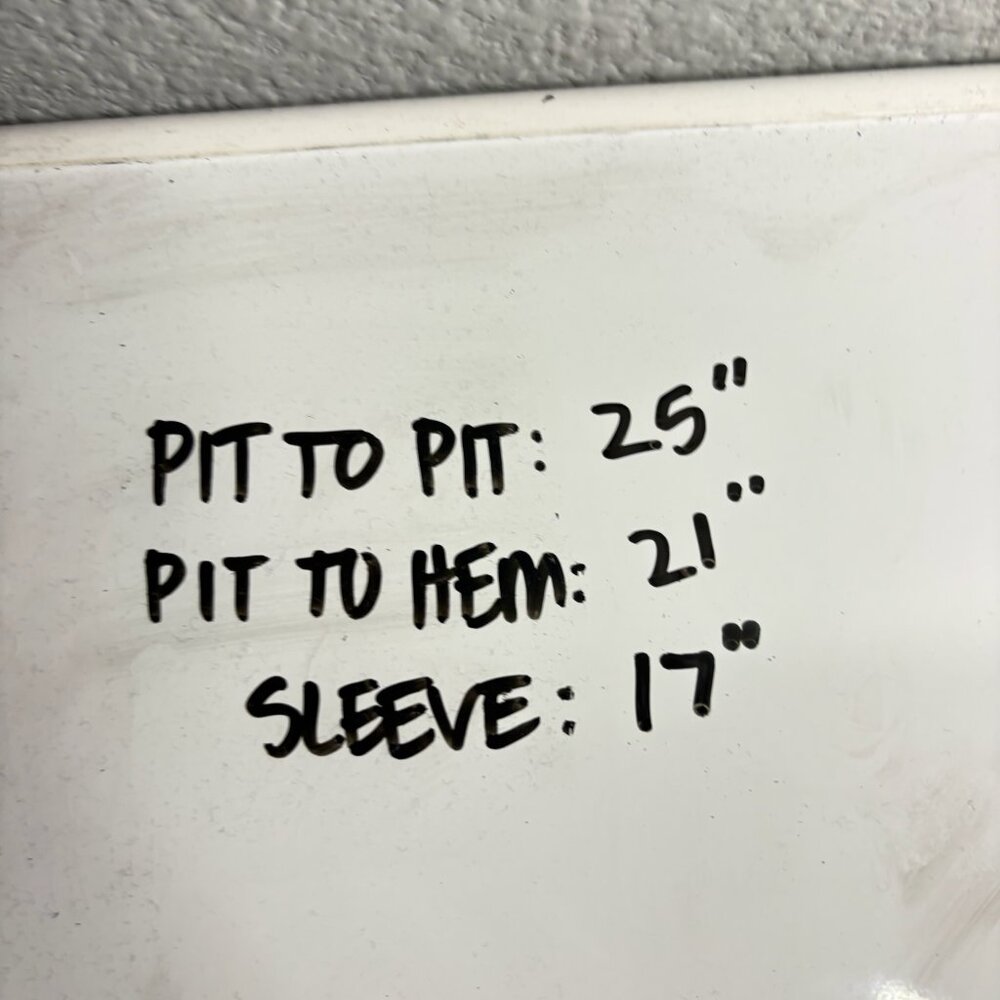 PIT TO PIT: 25"
PIT TO HEM: 21"
SLEEVE: 17"